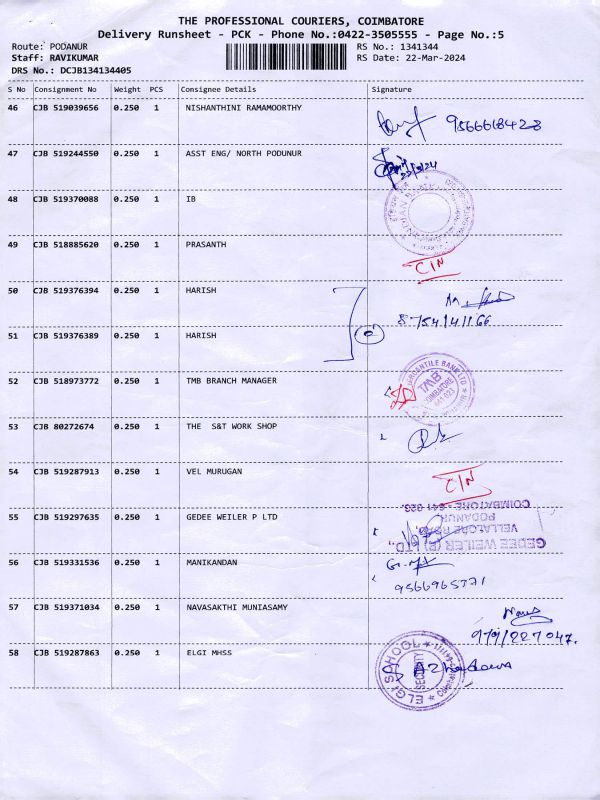 THE PROFESSIONAL COURIERS, COIMBATORE
Delivery Runsheet - PCK - Phone No.:0422-3505555 - Page No.:5
Route: PODANUR RS No.: 1341344
Staff: RAVIKUMAR RS Date: 22-Mar-2024
DRS No.: DCJB134134405
S No Consignment No Weight PCS Consignee Details Signature
46 CJB 519039656 0.250 1 NISHANTHINI RAMAMOORTHY
9566618428
47 CJB 519244550 0.250 1 ASST ENG/ NORTH PODUNUR
22/3/24
48 CJB 519370088 0.250 1 IB
49 CJB 518885620 0.250 1 PRASANTH
CIN
50 CJB 519376394 0.250 1 HARISH
8754141166
51 CJB 519376389 0.250 1 HARISH
52 CJB 518973772 0.250 1 TMB BRANCH MANAGER
MERCANTILE BANK LTD
TMB
COIMBATORE
641 023
53 CJB 80272674 0.250 1 THE S&T WORK SHOP
54 CJB 519287913 0.250 1 VEL MURUGAN
CIN
55 CJB 519297635 0.250 1 GEDEE WEILER P LTD
GEDEE WEILER (P) LTD.,
VELLALORE ROAD
PODANUR
COIMBATORE - 641 023.
56 CJB 519331536 0.250 1 MANIKANDAN
9566965771
57 CJB 519371034 0.250 1 NAVASAKTHI MUNIASAMY
58 CJB 519287863 0.250 1 ELGI MHSS
ELGI SCHOOL
SECURITY